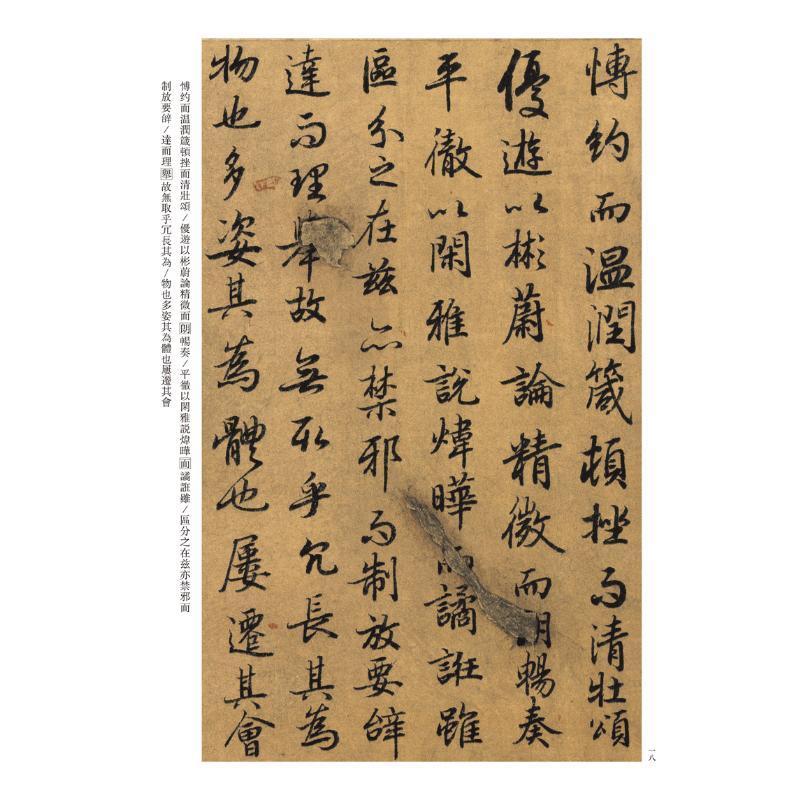 愽约而温潤箴頓挫而清壯頌
優遊以彬蔚論精微而朗暢奏
平徹以閑雅說煒曄而譎誑雖
區分之在茲亦禁邪而制放要辝
達而理舉故無取乎冗長其為
物也多姿其為體也屢遷其會
愽约而温潤箴頓挫而清壯頌/優遊以彬蔚論精微而朗暢奏/平徹以閑雅説煒曄而譎誑雖/區分之在兹亦禁邪而
制放要辝/達而理舉故無取乎冗長其為/物也多姿其為體也屢遷其會
一八